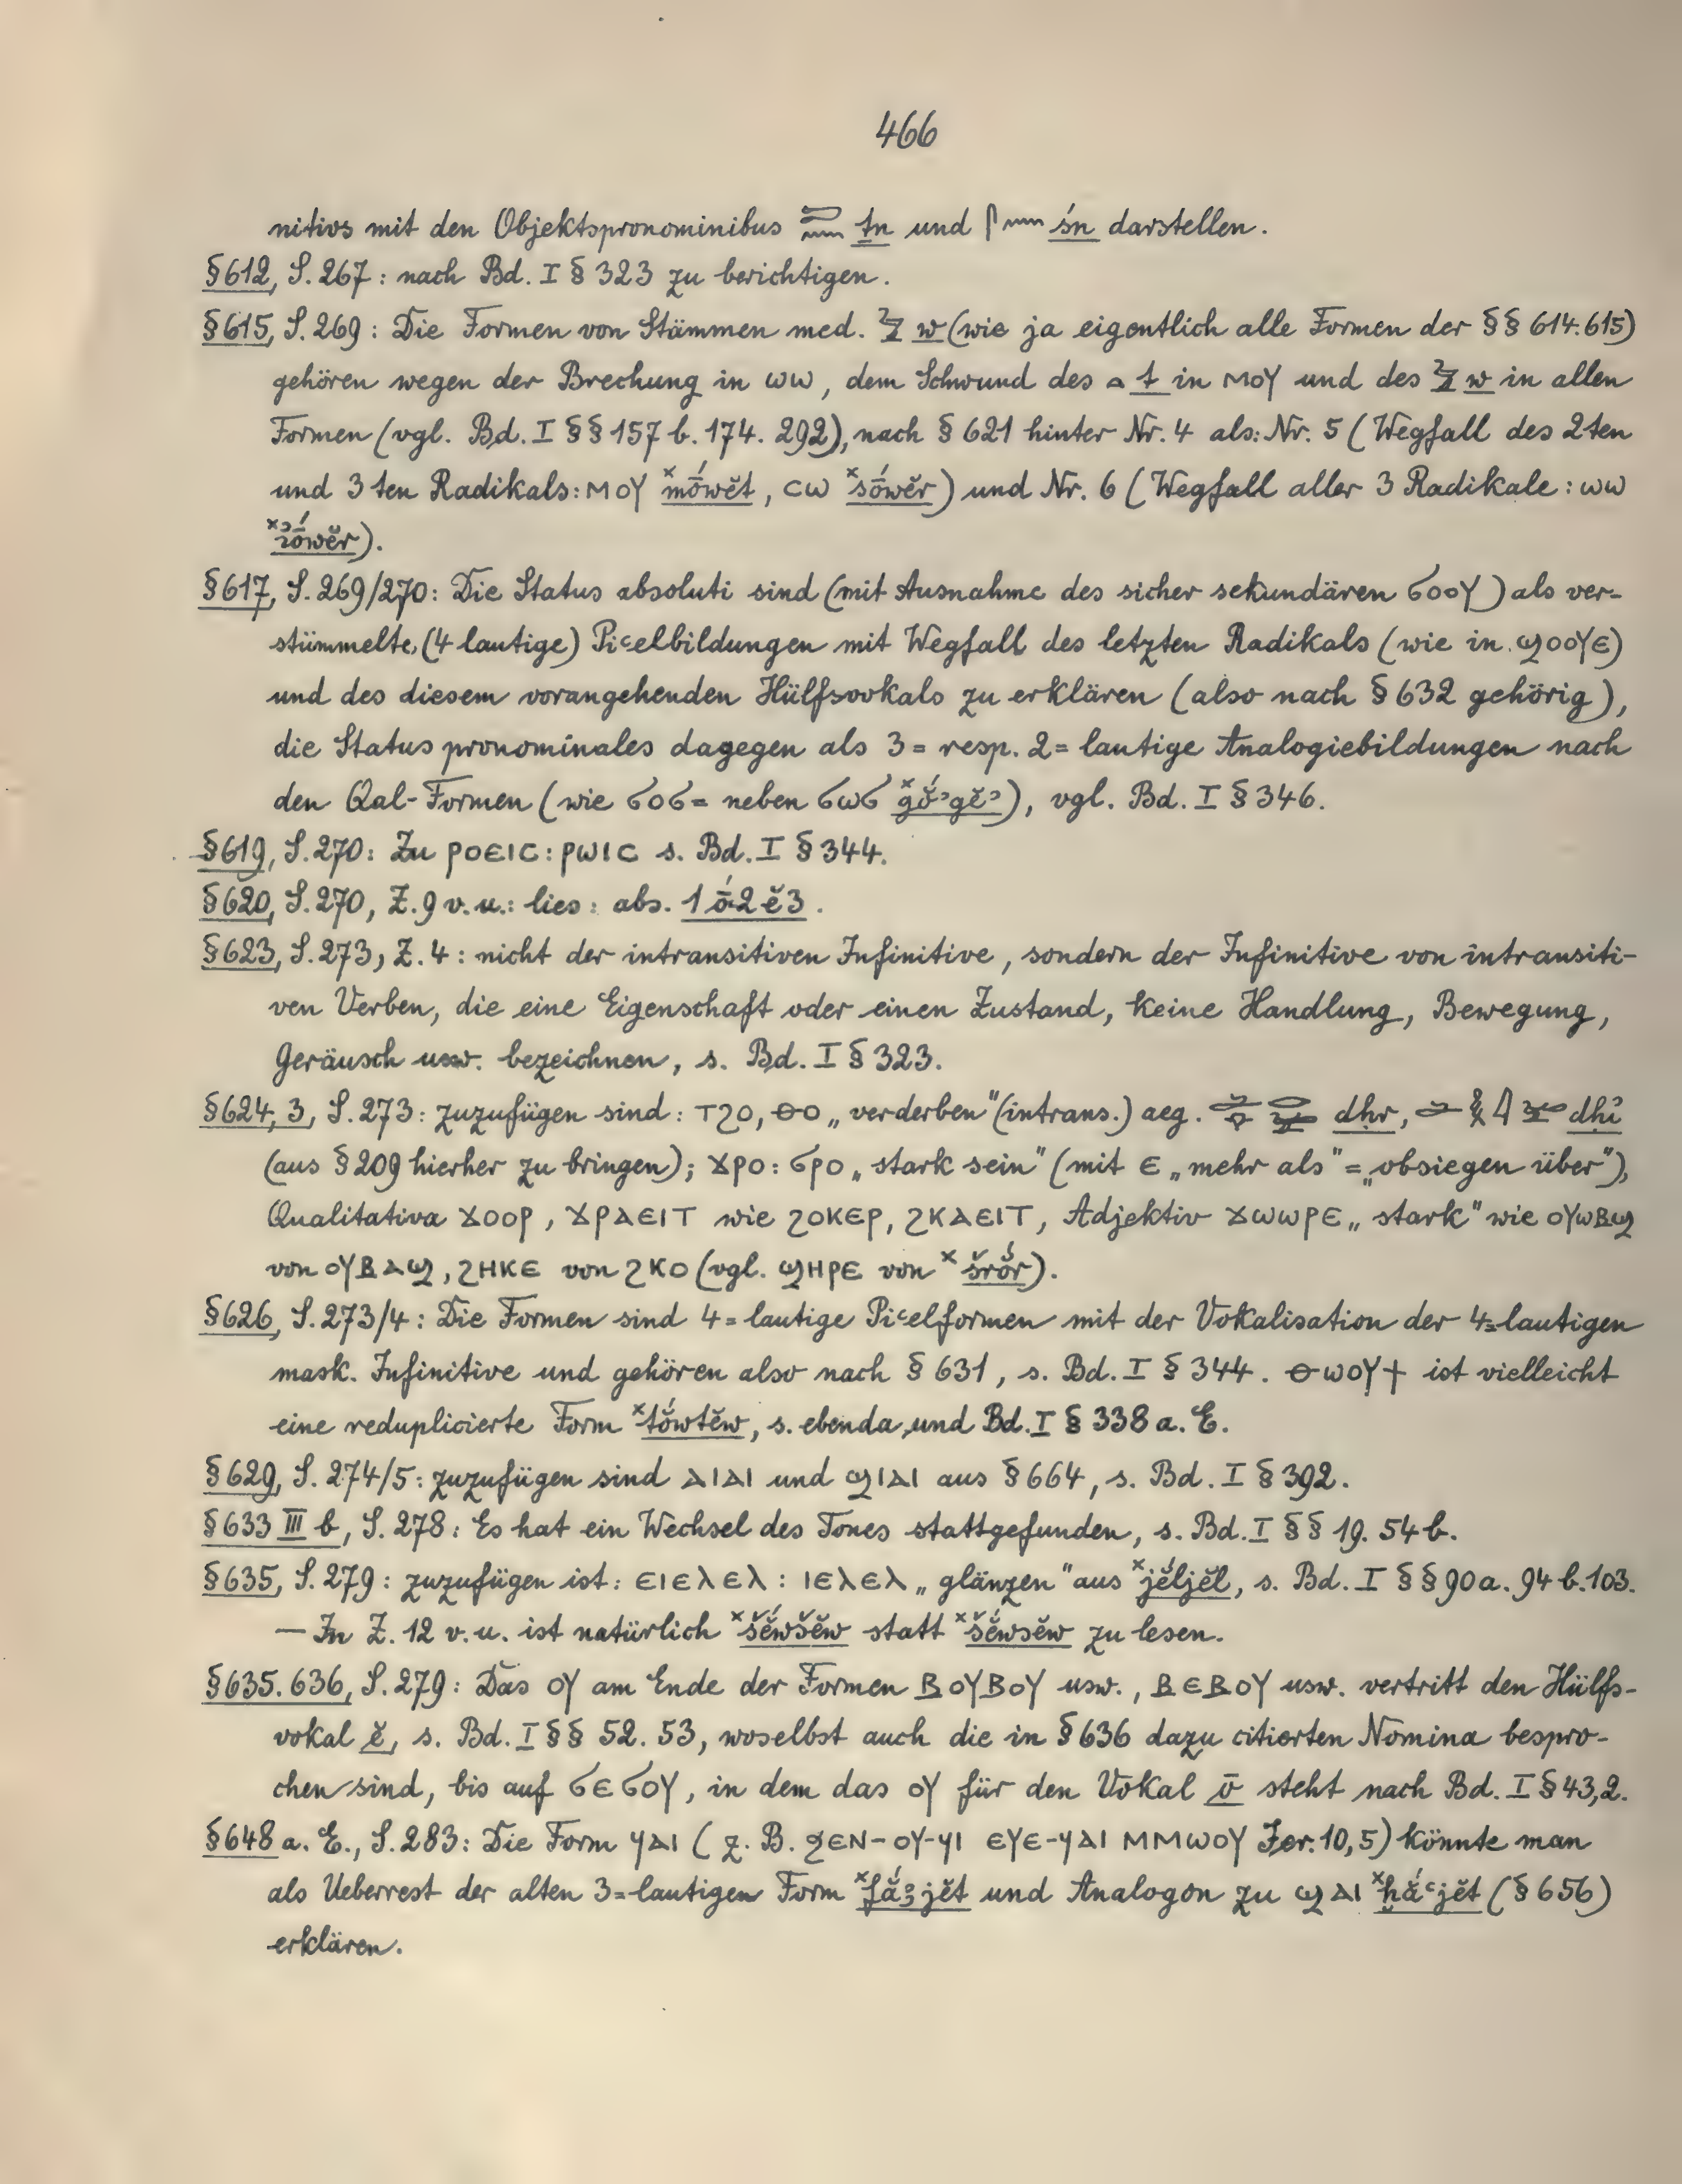 466
nitivs mit den Objektspronominibus ṯn und śn darstellen.
§612, S. 267: nach Bd. I § 323 zu berichtigen.
§615, S. 269: Die Formen von Stämmen med. w (wie ja eigentlich alle Formen der §§ 614. 615)
gehören wegen der Brechung in ⲱⲱ, dem Schwund des t in ⲙⲟⲩ und des w in allen
Formen (vgl. Bd. I §§ 157 b. 174. 292), nach § 621 hinter Nr. 4 als: Nr. 5 (Wegfall des 2ten
und 3ten Radikals: ⲙⲟⲩ ˣmṓwĕt, ⲥⲱ ˣsṓwĕr) und Nr. 6 (Wegfall aller 3 Radikale: ⲱⲱ
).
§617, S. 269/270: Die Status absoluti sind (mit Ausnahme des sicher sekundären ϭⲟⲟⲩ) als ver-
stümmelte, (4 lautige) Piꜥelbildungen mit Wegfall des letzten Radikals (wie in ϣⲟⲟⲩⲉ)
und des diesem vorangehenden Hülfsvokals zu erklären (also nach § 632 gehörig),
die Status pronominales dagegen als 3= resp. 2= lautige Analogiebildungen nach
den Qal-Formen (wie ϭⲟϭ= neben ϭⲱϭ ˣgŏ́ꜣgĕꜣ), vgl. Bd. I § 346.
§619, S. 270: Zu ⲣⲟⲉⲓⲥ: ⲣⲱⲓⲥ s. Bd. I § 344.
§620, S. 270, Z. 9 v. u.: lies: abs. 1ā́2ĕ3.
§623, S. 273, Z. 4: nicht der intransitiven Infinitive, sondern der Infinitive von intransiti-
ven Verben, die eine Eigenschaft oder einen Zustand, keine Handlung, Bewegung,
Geräusch usw. bezeichnen, s. Bd. I § 323.
§624, 3, S. 273: zuzufügen sind: ⲧϩⲟ, ⲑⲟ „verderben" (intrans.) aeg. dḥr, dḥỉ
(aus § 209 hierher zu bringen); ϫⲣⲟ: ϭⲣⲟ „stark sein" (mit ⲉ „mehr als" = „obsiegen über"),
Qualitativa ϫⲟⲟⲣ, ϫⲣⲁⲉⲓⲧ wie ϩⲟⲕⲉⲣ, ϩⲕⲁⲉⲓⲧ, Adjektiv ϫⲱⲱⲣⲉ „stark" wie ⲟⲩⲱⲃϣ
von ⲟⲩⲃⲁϣ, ϩⲏⲕⲉ von ϩⲕⲟ (vgl. ϣⲏⲣⲉ von ˣšrŏ́r).
§626, S. 273/4: Die Formen sind 4=lautige Piꜥelformen mit der Vokalisation der 4=lautigen
mask. Infinitive und gehören also nach § 631, s. Bd. I § 344. ⲑⲱⲟⲩϯ ist vielleicht
eine reduplicierte Form ˣtŏ́wtĕw, s. ebenda, und Bd. I § 338 a. E.
§629, S. 274/5: zuzufügen sind ⲁⲓⲁⲓ und ϣⲓⲁⲓ aus § 664, s. Bd. I § 392.
§633 III b, S. 278: Es hat ein Wechsel des Tones stattgefunden, s. Bd. I §§ 19. 54 b.
§635, S. 279: zuzufügen ist: ⲉⲓⲉⲗⲉⲗ: ⲓⲉⲗⲉⲗ „glänzen" aus ˣjĕ́ljĕl, s. Bd. I §§ 90 a. 94 b. 103.
— In Z. 12 v. u. ist natürlich ˣšĕ́wšĕw statt ˣšĕ́wsĕw zu lesen.
§635. 636, S. 279: Das ⲟⲩ am Ende der Formen ⲃⲟⲩⲃⲟⲩ usw., ⲃⲉⲃⲟⲩ usw. vertritt den Hülfs-
vokal ĕ, s. Bd. I §§ 52. 53, woselbst auch die in § 636 dazu citierten Nomina bespro-
chen sind, bis auf ϭⲉϭⲟⲩ, in dem das ⲟⲩ für den Vokal ō steht nach Bd. I § 43,2.
§648 a. E., S. 283: Die Form ϥⲁⲓ (z. B. ϧⲉⲛ-ⲟⲩ-ϥⲓ ⲉⲩⲉ-ϥⲁⲓ ⲙⲙⲱⲟⲩ Jer. 10, 5) könnte man
als Ueberrest der alten 3=lautigen Form ˣfắꜣjĕt und Analogon zu ϣⲁⲓ ˣḫắꜥjĕt (§ 656)
erklären.